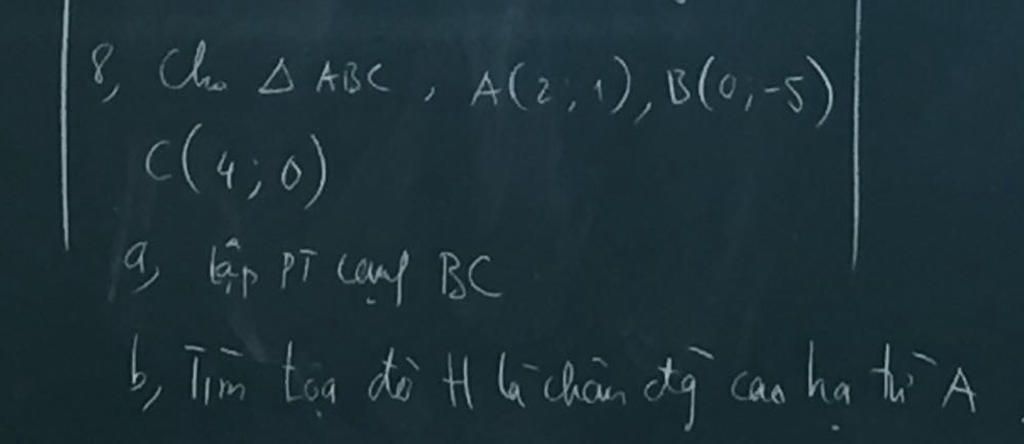 8, Cho Δ ABC, A(2;1), B(0;-5)
C(4;0)
a, lập PT cạnh BC
b, Tìm tọa độ H là chân đg cao hạ từ A